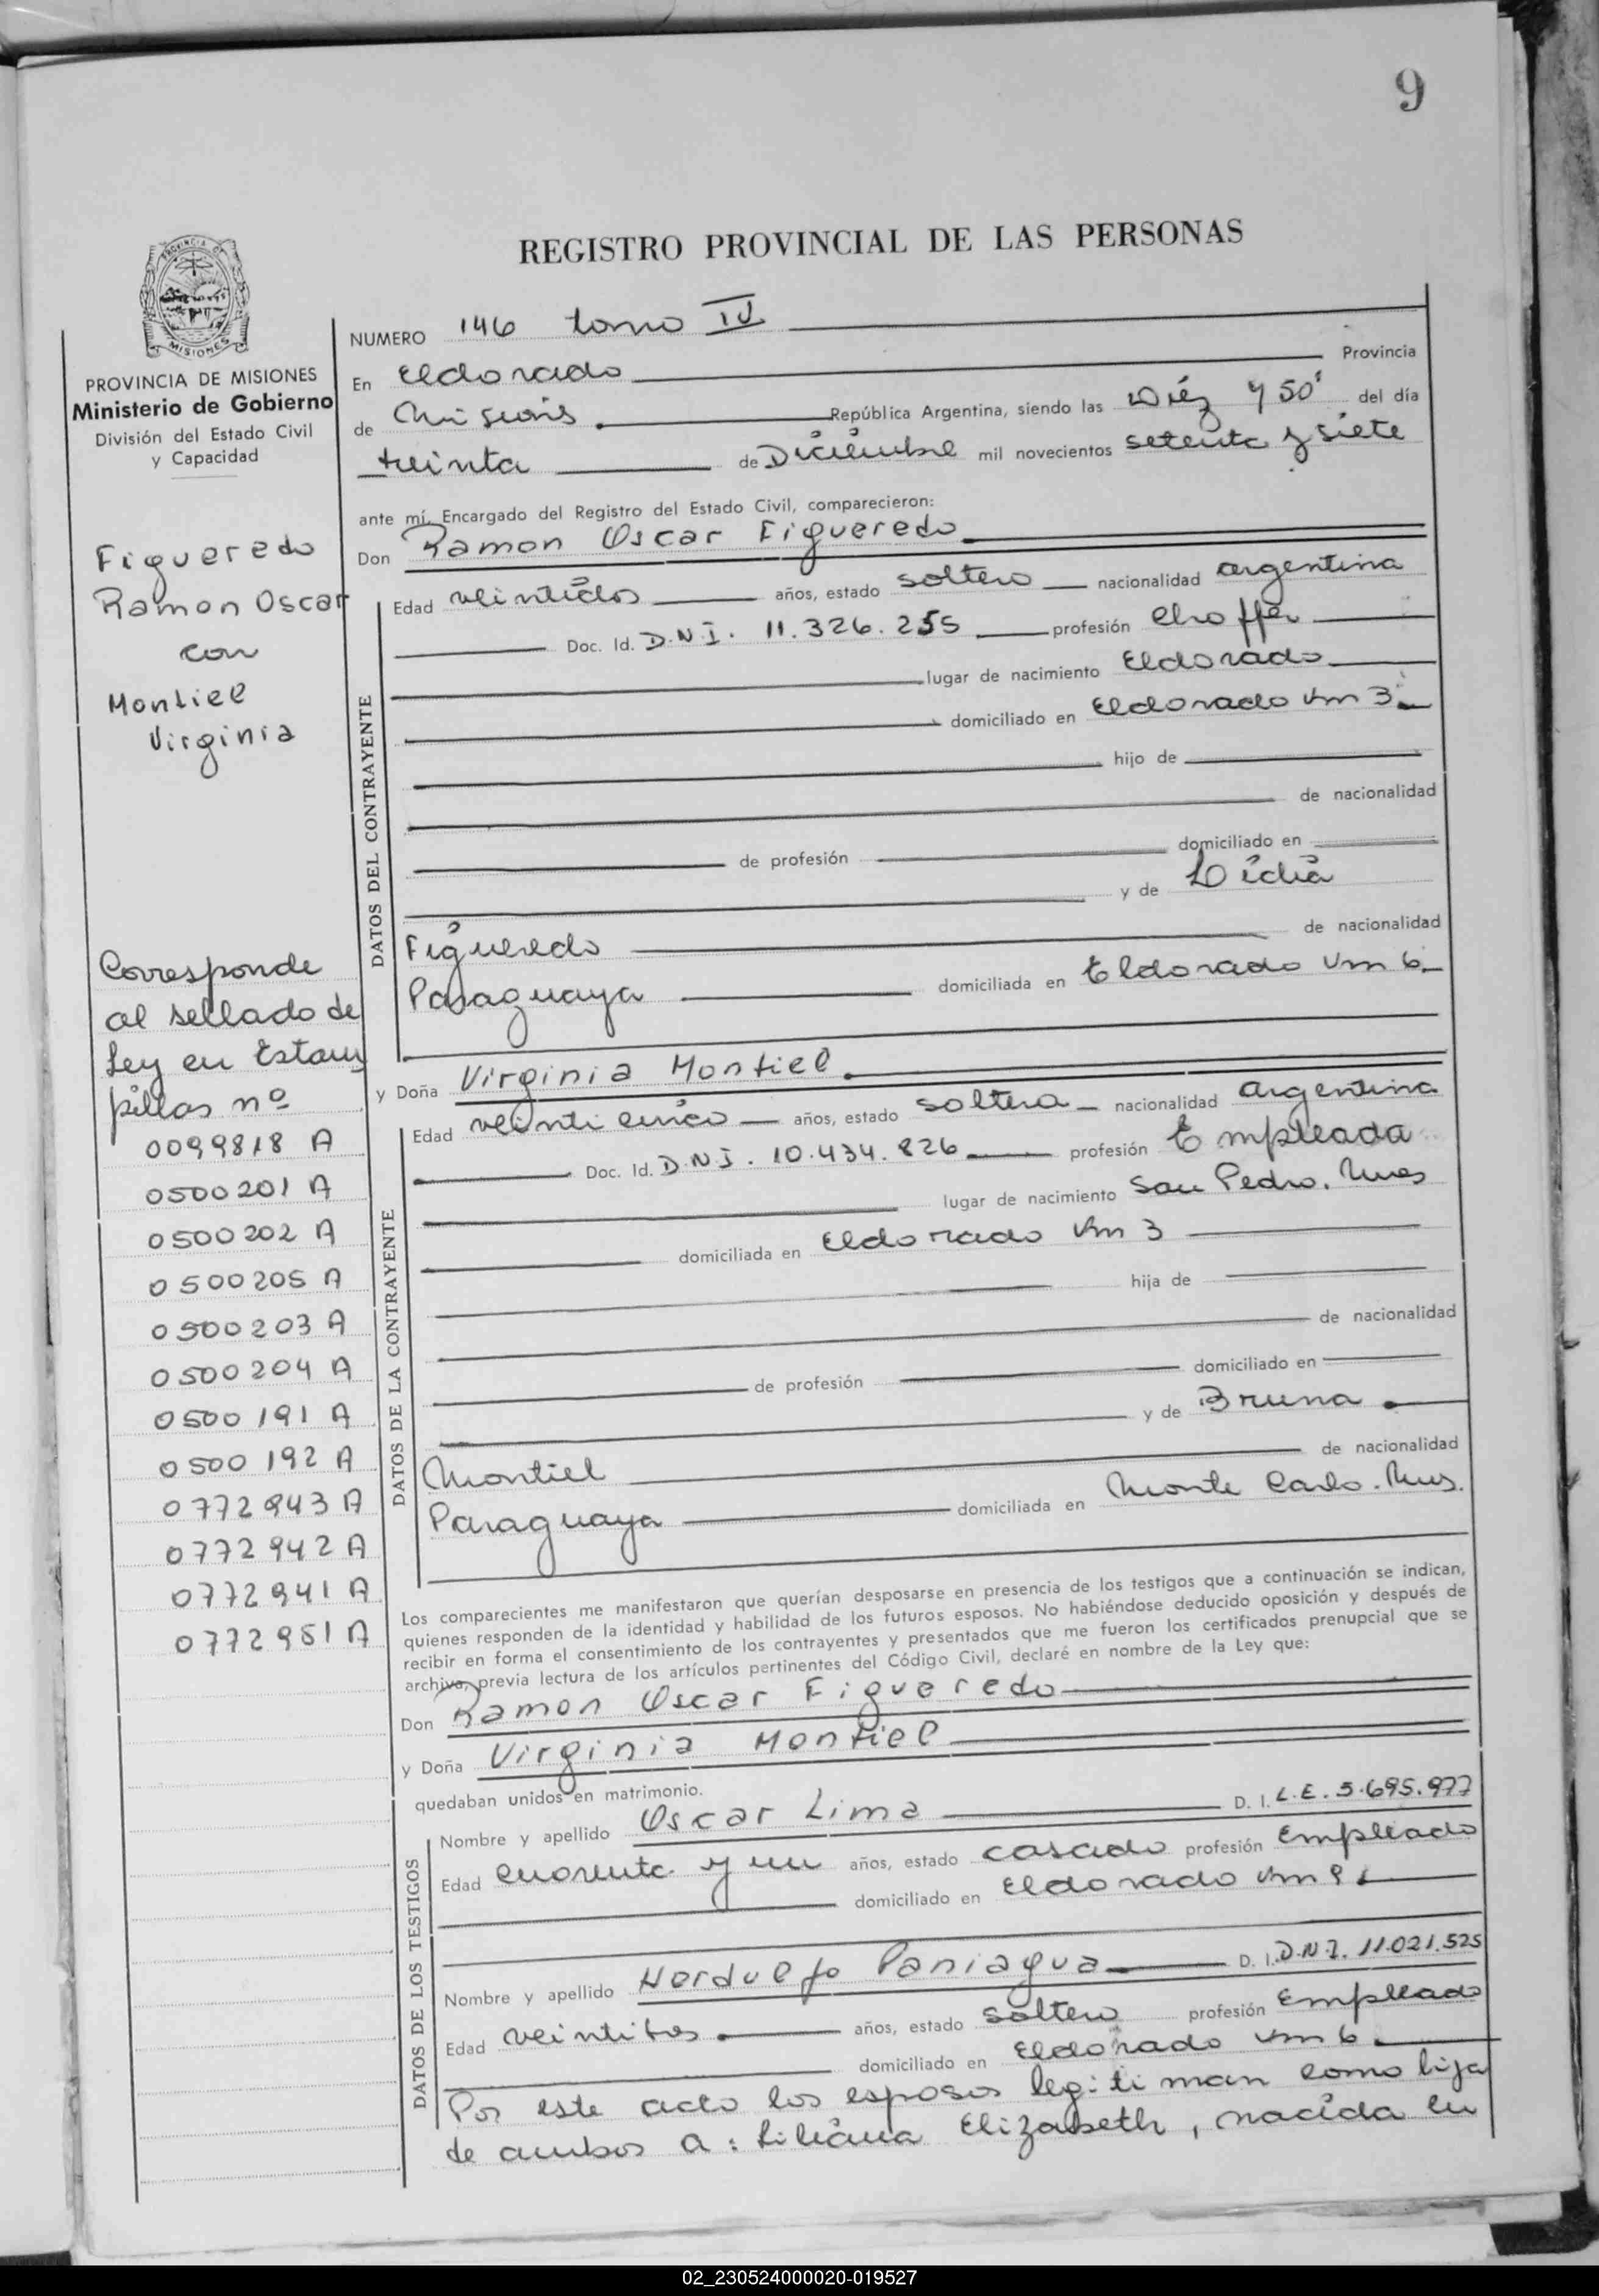 9
REGISTRO PROVINCIAL DE LAS PERSONAS
PROVINCIA DE MISIONES
PROVINCIA DE MISIONES
Ministerio de Gobierno
División del Estado Civil
y Capacidad
Figueredo
Ramon Oscar
con
Montiel
Virginia
Corresponde
al sellado de
Ley en Estam
pillas nº
0099818 A
0500201 A
0500202 A
0500205 A
0500203 A
0500204 A
0500191 A
0500192 A
0772943 A
0772942 A
0772941 A
0772951 A
NUMERO 146 tomo IV
En Eldorado Provincia
de Misiones República Argentina, siendo las Diéz y 50' del día
treinta de Diciembre mil novecientos setenta y siete
ante mí, Encargado del Registro del Estado Civil, comparecieron:
Don Ramon Oscar Figueredo
DATOS DEL CONTRAYENTE
Edad veintidos años, estado soltero nacionalidad argentina
Doc. Id. D.N.I. 11.326.255 profesión Choffer
lugar de nacimiento Eldorado
domiciliado en Eldorado Km 3
hijo de
de nacionalidad
de profesión domiciliado en
y de Lidia
Figueredo de nacionalidad
Paraguaya domiciliada en Eldorado Km 6
y Doña Virginia Montiel
DATOS DE LA CONTRAYENTE
Edad veinticinco años, estado soltera nacionalidad argentina
Doc. Id. D.N.I. 10.434.826 profesión Empleada
lugar de nacimiento San Pedro. Mnes
domiciliada en Eldorado Km 3
hija de
de nacionalidad
de profesión domiciliado en
y de Bruna
Montiel de nacionalidad
Paraguaya domiciliada en Monte Carlo. Mns.
Los comparecientes me manifestaron que querían desposarse en presencia de los testigos que a continuación se indican,
quienes responden de la identidad y habilidad de los futuros esposos. No habiéndose deducido oposición y después de
recibir en forma el consentimiento de los contrayentes y presentados que me fueron los certificados prenupcial que se
archiva, previa lectura de los artículos pertinentes del Código Civil, declaré en nombre de la Ley que:
Don Ramon Oscar Figueredo
y Doña Virginia Montiel
quedaban unidos en matrimonio.
DATOS DE LOS TESTIGOS
Nombre y apellido Oscar Lima D. I. L.E. 5.695.977
Edad cuarenta y un años, estado casado profesión Empleado
domiciliado en Eldorado Km 9
Nombre y apellido Paniagua D. I. D.N.I. 11.021.525
Edad veintitres años, estado soltero profesión Empleado
domiciliado en Eldorado Km 6
Por este acto los esposos legitiman como hija
de ambos a: Liliana Elizabeth, nacida en
02_230524000020-019527